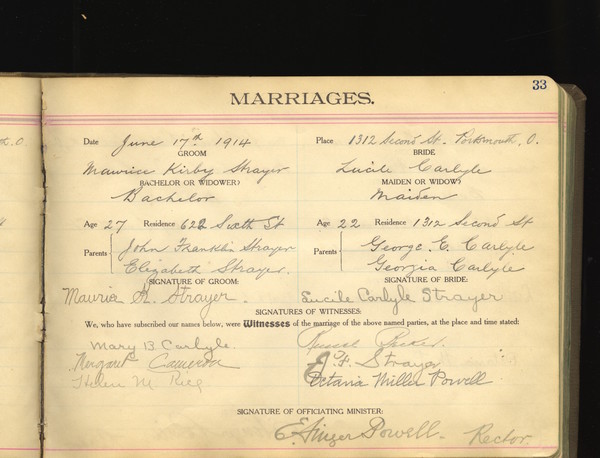 t. O
33
MARRIAGES.
Date June 17th 1914 Place 1312 Second St. Portsmouth, O.
GROOM BRIDE
Maurice Kirby Strayer Lucile Carlyle
BACHELOR OR WIDOWER? MAIDEN OR WIDOW?
Bachelor Maiden
Age 27 Residence 622 Sixth St Age 22 Residence 1312 Second St
Parents John Franklin Strayer Parents George E. Carlyle
Elizabeth Strayer. Georgia Carlyle
SIGNATURE OF GROOM: SIGNATURE OF BRIDE:
Maurice K. Strayer. Lucile Carlyle Strayer
SIGNATURES OF WITNESSES:
We, who have subscribed our names below, were Witnesses of the marriage of the above named parties, at the place and time stated:
Mary B. Carlyle.
Margaret Cameron J. F. Strayer
Helen M. Octavia Miller Powell
SIGNATURE OF OFFICIATING MINISTER:
E. Ainger Powell. Rector.